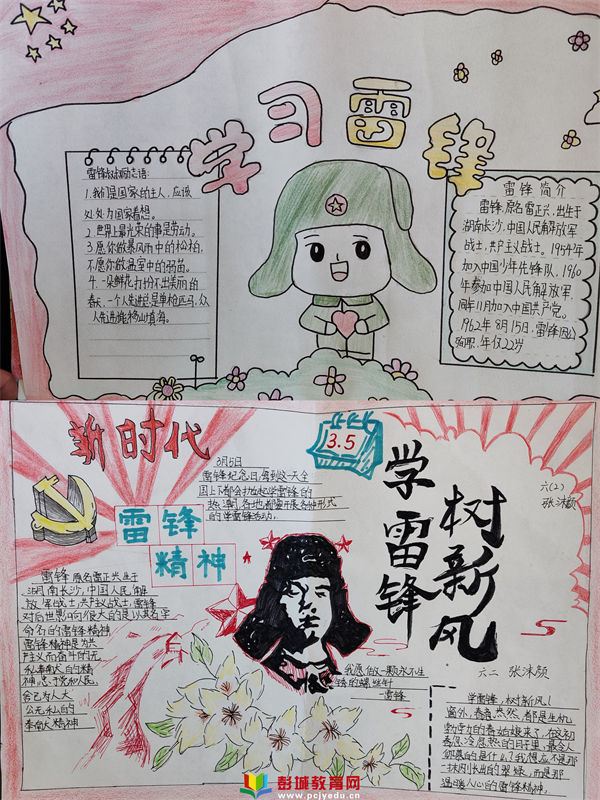 学习雷锋
雷锋树励志语:
1.我们是国家的主人,应该
处处为国家着想。
2.世界上最光荣的事是劳动。
3.愿你做暴风雨中的松柏,
不愿你做温室中的弱苗。
4.一朵鲜花打扮不出美丽的
春天,一个人先进总是单枪匹马,众
人先进能移山填海。
雷锋简介
雷锋,原名雷正兴,出生于
湖南长沙,中国人民解放军
战士,共产主义战士。1954年
加入中国少年先锋队,1960
年参加中国人民解放军,
同年11月加入中国共产党。
1962年8月15日,雷锋因公
殉职,年仅22岁
新时代
3.5
学雷锋
树新风
六(2)
张沐颜
3月5日
雷锋纪念日,每到这一天全
国上下都会掀起学雷锋的
热潮,各地都要开展各种形式
的学雷锋活动。
雷锋
精神
雷锋 原名雷正兴,生于
湖南长沙,中国人民解
放军战士,共产主义战士,雷锋
对后世影响很大的是以其名字
命名的雷锋精神
雷锋精神是为共
产主义而奋斗的无
私奉献的精
神;忠于党和人民、
舍己为人、大
公无私的
奉献精神
我愿做一颗永不生
锈的螺丝钉
—雷锋
六二 张沐颜
学雷锋,树新风!
窗外,春意盎然,都是生机
的春姑娘来了,在这初
春忽冷忽热的日子里,最令人
的是什么?我想应不是那
一抹刚长出的翠绿,而是那
温暖人心的雷锋精神。
彭城教育网
www.pcjyedu.cn